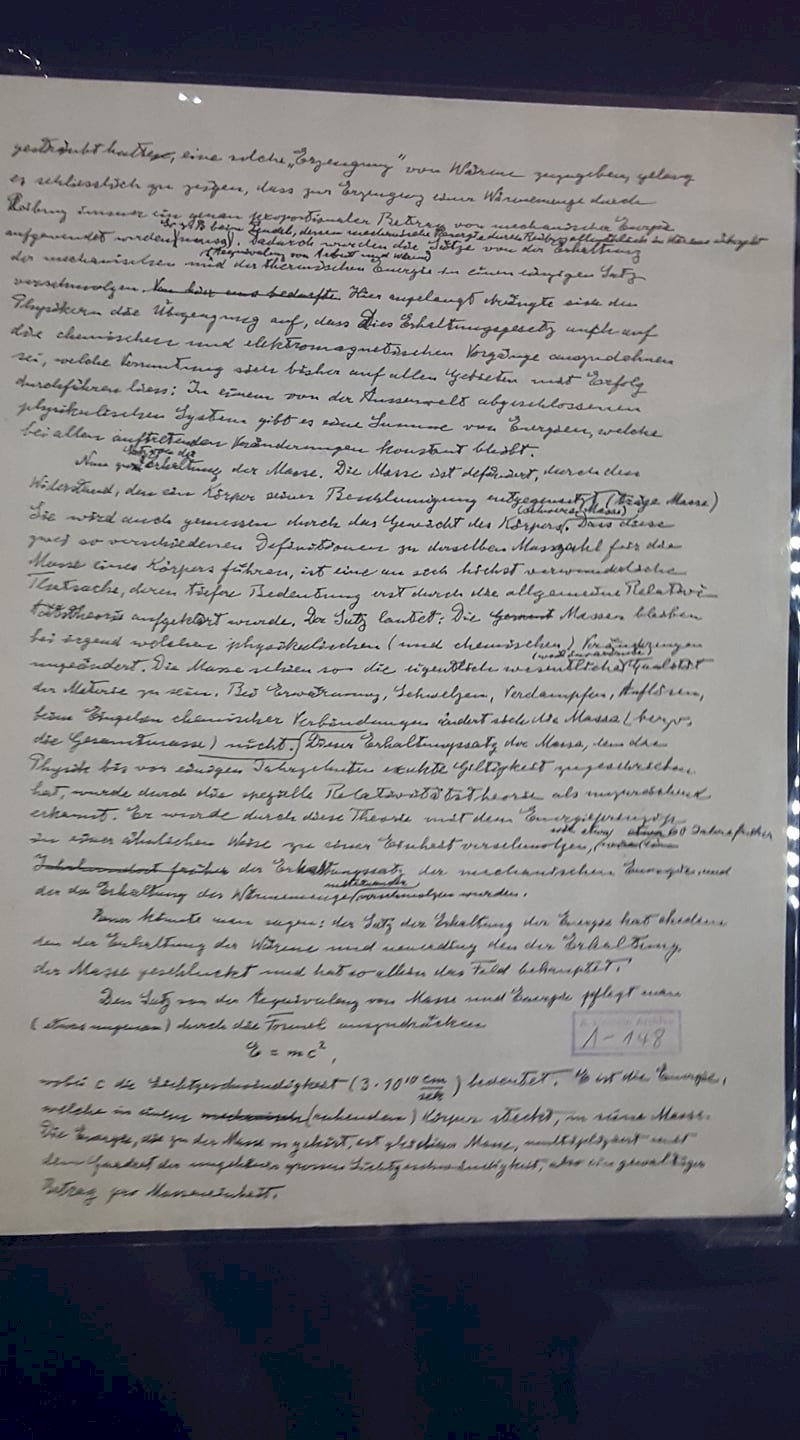 gesträubt hatten, eine solche „Erzeugung" von Wärme zuzugeben, gelang
es schliesslich zu zeigen, dass zur Erzeugung einer Wärmemenge durch
Reibung immer ein genau proportionaler Betrag von mechanischer Energie
aufgewendet werden (muss). Dadurch wurden die Sätze von der Erhaltung
Aequivalenz von Arbeit und Wärme
der mechanischen und der thermischen Energie in einen einzigen Satz
verschmolzen. Hier angelangt drängte sich den
Physikern die Überzeugung auf, dass dies Erhaltungsgesetz auch auf
die chemischen und elektromagnetischen Vorgänge auszudehnen
sei, welche Vermutung sich bisher auf allen Gebieten mit Erfolg
durchführen liess: In einem von der Aussenwelt abgeschlossenen
physikalischen System gibt es eine Summe von Energien, welche
bei allen auftretenden Veränderungen konstant bleibt.
Satz von der
Nun zur Erhaltung der Masse. Die Masse ist definiert, durch den
Widerstand, den ein Körper seiner Beschleunigung entgegensetzt (träge Masse)
(schwere Masse)
Sie wird auch gemessen durch das Gewicht des Körpers. Dass diese
zwei so verschiedenen Definitionen zu derselben Masszahl für die
Masse eines Körpers führen, ist eine an sich höchst verwunderliche
Thatsache, deren tiefere Bedeutung erst durch die allgemeine Relativi-
tätstheorie aufgeklärt wurde. Der Satz lautet: Die Massen bleiben
bei irgend welchen physikalischen (und chemischen) Veränderungen
ungeändert. Die Masse schien so die eigentlich wesentliche Qualität
der Materie zu sein. Bei Erwärmung, Schmelzen, Verdampfen, Auflösen,
beim Eingehen chemischer Verbindungen ändert sich die Masse (bezw.
die Gesamtmasse) nicht. Dieser Erhaltungssatz der Masse, dem die
Physik bis vor einigen Jahrzehnten exakte Giltigkeit zugeschrieben
hat, wurde durch die spezielle Relativitätstheorie als unzureichend
erkannt. Er wurde durch diese Theorie mit dem Energieprinzip
wie etwa 60 Jahre früher
in einer ähnlichen Weise zu einer Einheit verschmolzen,
früher der Erhaltungssatz der mechanischen Energie und
miteinander
der der Erhaltung der Wärmemenge verschmolzen wurden.
könnte man sagen: der Satz der Erhaltung der Energie hat ehedem
den der Erhaltung der Wärme und neuerding den der Erhaltung
der Masse geschluckt und hat so allein das Feld behauptet.
Den Satz von der Aequivalenz von Masse und Energie pflegt man
(etwas ungenau) durch die Formel auszudrücken
E = mc²,
1-148
wobei c die Lichtgeschwindigkeit (3·10¹⁰ cm/sek) bedeutet. E ist die Energie,
welche in einem (ruhenden) Körper steckt, m seine Masse.
Die Energie, die zu der Masse m gehört, ist gleich dieser Masse, multipliziert mit
dem Quadrat der ungeheuer grossen Lichtgeschwindigkeit, also ein gewaltiger
Betrag pro Masseneinheit.